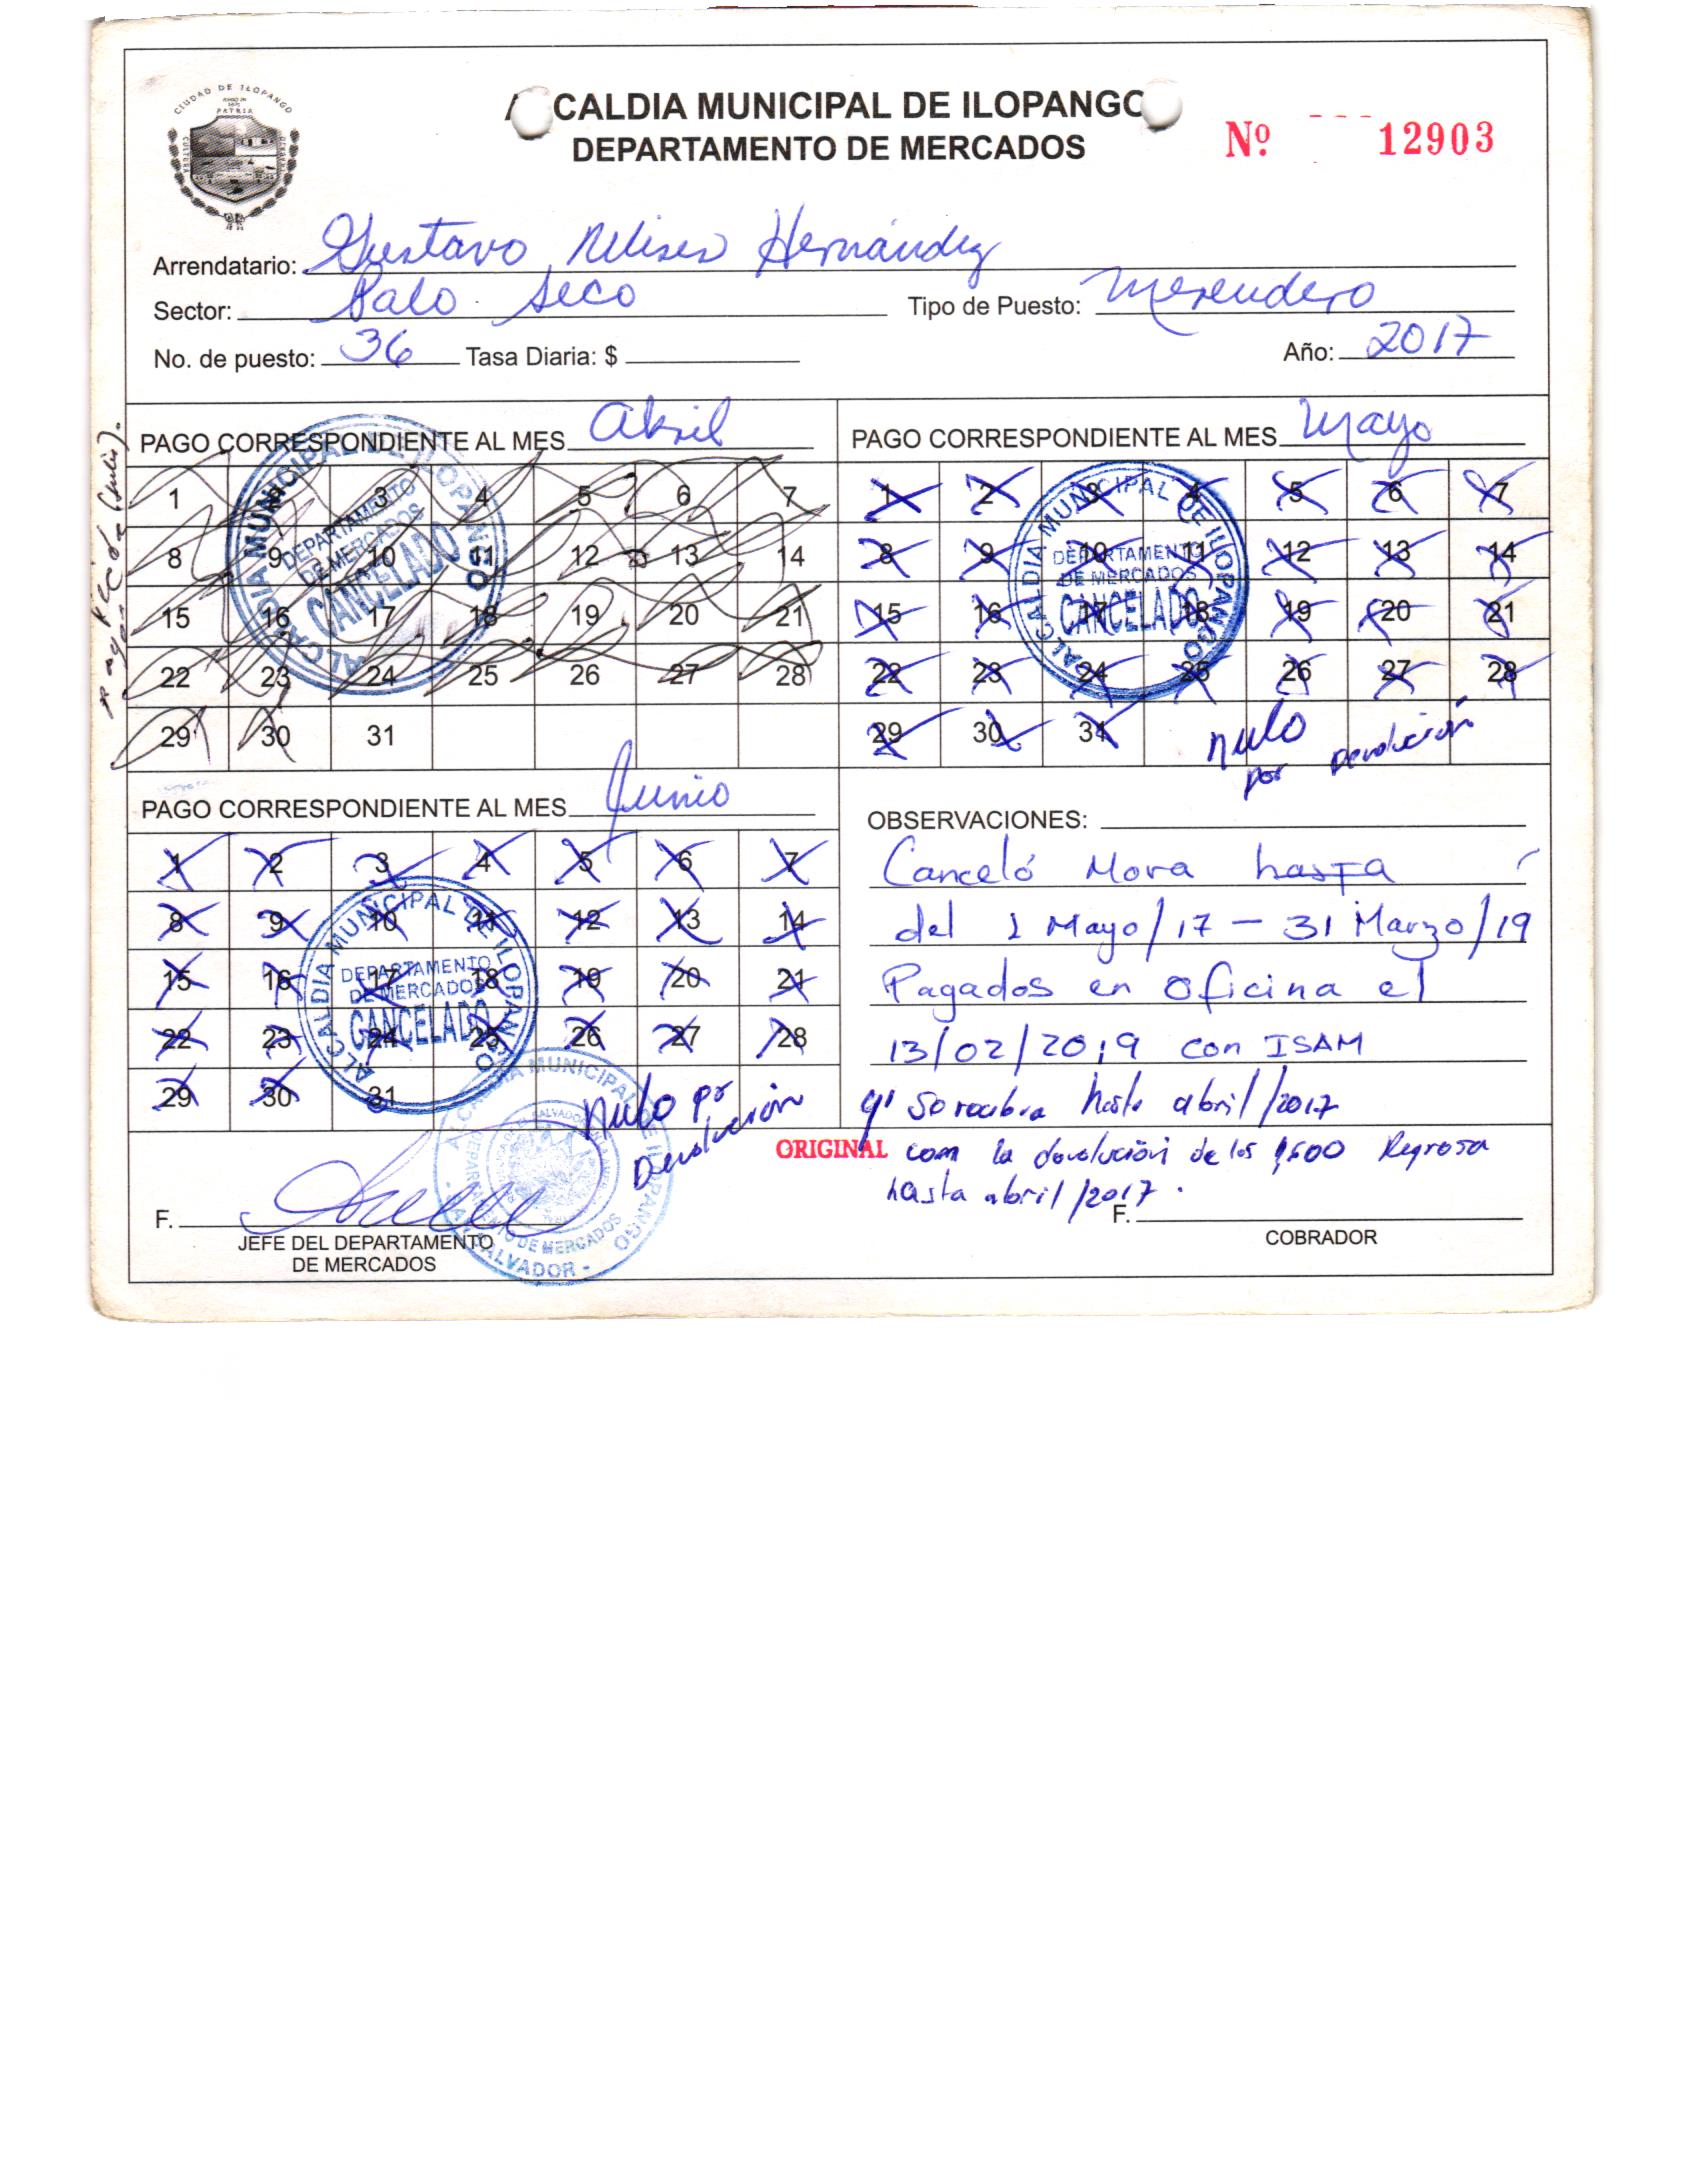 CIUDAD DE ILOPANGO
PATRIA
CULTURA
ALCALDIA MUNICIPAL DE ILOPANGO
DEPARTAMENTO DE MERCADOS
Nº 12903
Arrendatario: Gustavo Ulises Hernández
Sector: Palo Seco Tipo de Puesto: Merendero
No. de puesto: 36 Tasa Diaria: $ Año: 2017
PAGO CORRESPONDIENTE AL MES Abril
1 2 3 4 5 6 7
8 9 10 11 12 13 14
15 16 17 18 19 20 21
22 23 24 25 26 27 28
29 30 31
ALCALDIA MUNICIPAL DE ILOPANGO
DEPARTAMENTO
DE MERCADOS
CANCELADO
PAGO CORRESPONDIENTE AL MES Mayo
1 2 3 4 5 6 7
8 9 10 11 12 13 14
15 16 17 18 19 20 21
22 23 24 25 26 27 28
29 30 31
ALCALDIA MUNICIPAL DE ILOPANGO
DEPARTAMENTO
DE MERCADOS
CANCELADO
nulo
por Devolución
PAGO CORRESPONDIENTE AL MES Junio
1 2 3 4 5 6 7
8 9 10 11 12 13 14
15 16 17 18 19 20 21
22 23 24 25 26 27 28
29 30 31
ALCALDIA MUNICIPAL DE ILOPANGO
DEPARTAMENTO
DE MERCADOS
CANCELADO
Nulo por
Devolución
OBSERVACIONES:
Canceló Mora hasta
del 1 Mayo/17 - 31 Marzo/19
Pagados en Oficina el
13/02/2019 con ISAM
hasta abril/2017
ORIGINAL com la devolución de los Regresa
hasta abril/2017.
F.
JEFE DEL DEPARTAMENTO
DE MERCADOS
ALCALDIA MUNICIPAL DE ILOPANGO
DEPARTAMENTO DE MERCADOS
SALVADOR
F.
COBRADOR